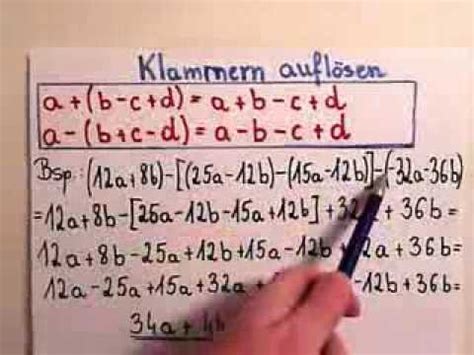 Klammern auflösen
a+(b-c+d)=a+b-c+d
a-(b+c-d)=a-b-c+d
Bsp.: (12a+8b)-[(25a-12b)-(15a-12b)]-(-32a-36b)
=12a+8b-[25a-12b-15a+12b]+32 +36b=
12a+8b-25a+12b+15a-12b 2a+36b=
12a-25a+15a+32a -12b+36b=
34a+